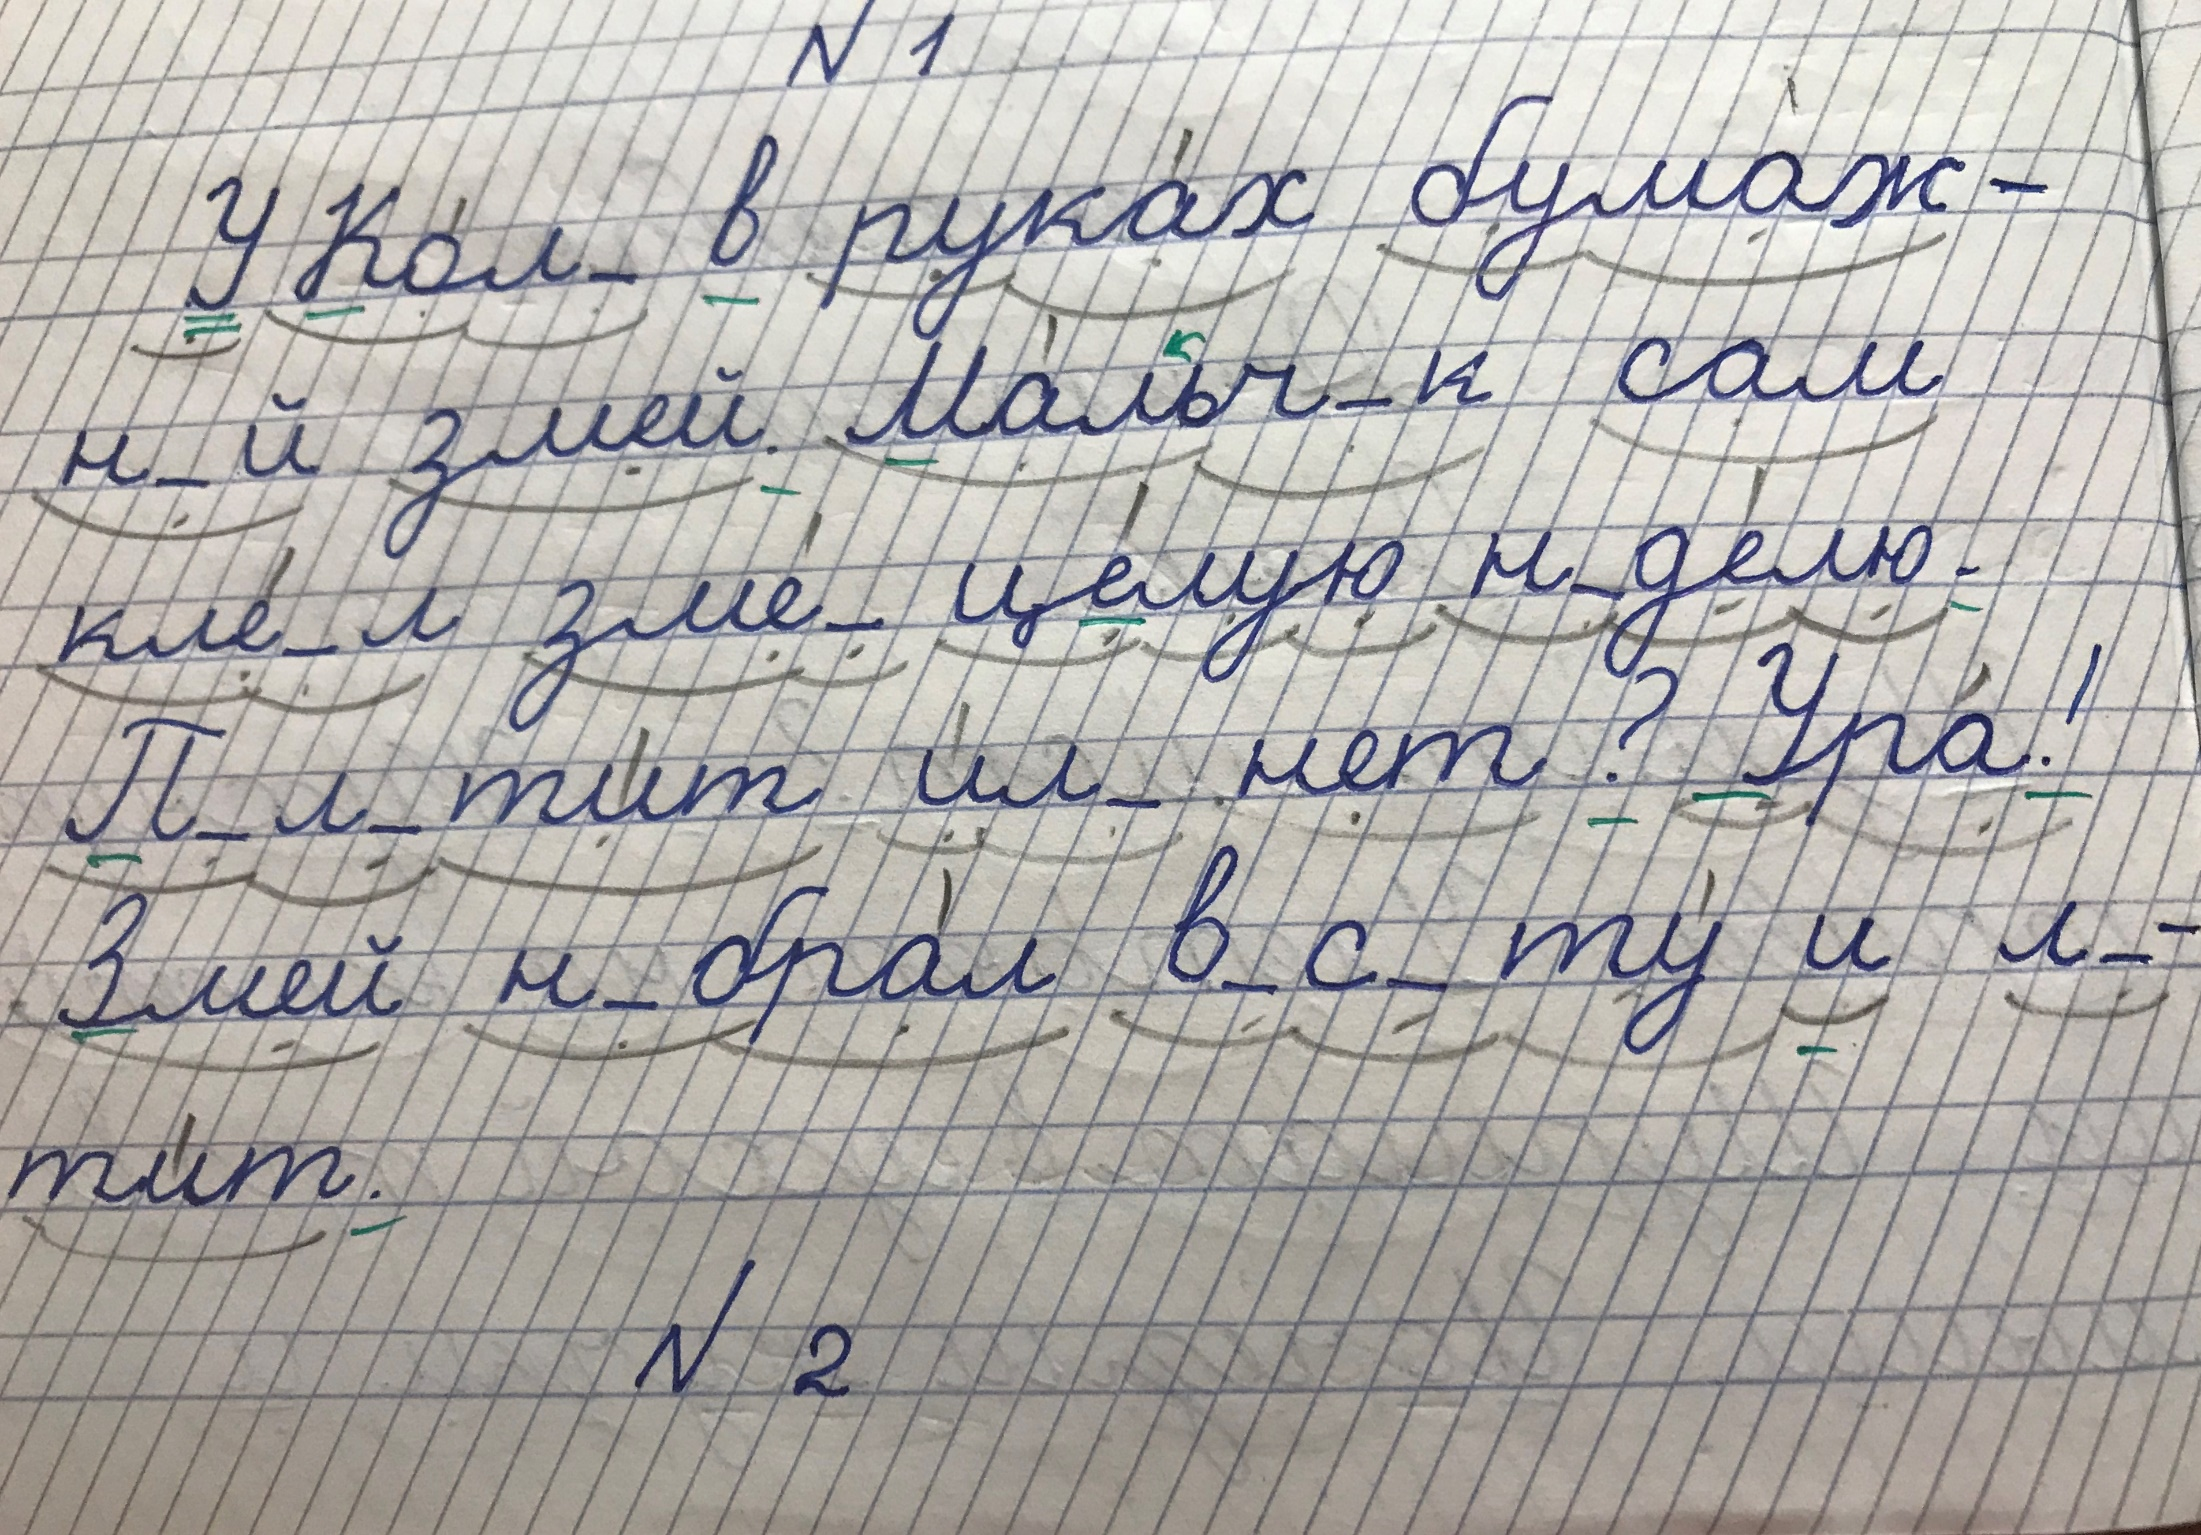 N 1
У Кол_ в руках бумаж-
н_й змей. Мальч_к сам
кле_л зме_ целую н_делю.
П_л_тит ил_ нет? Ура!
Змей н_брал в_с_ту и л_-
тит.
N 2